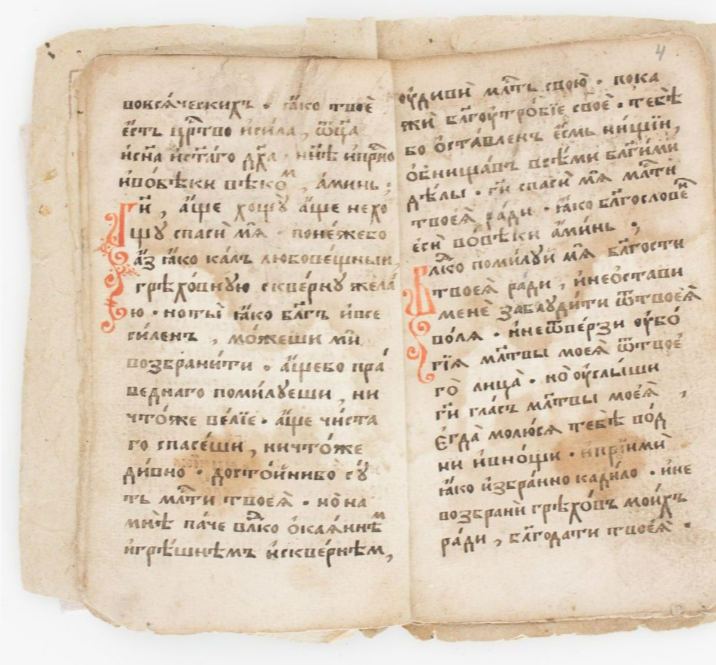 вовся́ческихъ · ꙗ҆́ко твоѐ
є҆́сть црⷭ҇тво исила, ѻ҆ц҃а̀
исн҃а ист҃а́го дх҃а · нн҃ѣ ипрⷭ҇но
ивовѣки вѣкоⷨ, а҆ми́нь ;
Гⷭ҇и, а҆́ще хощꙋ̀ а҆́ще нехо
щꙋ̀ спаси мѧ̀ · поне́жебо
а҆́з ꙗ҆́ко ка́лъ любове́щныи
грѣхо́внꙋю скве́рнꙋ жела́
ю · ноты̀ ꙗ҆́ко бл҃гъ ивсе
си́ленъ, мо́жеши ми
возбрани́ти · а҆́щебо пра́
веднаго поми́лꙋеши, ни
что́же ве́лїе · а҆́ще чи́ста
го спасе́ши, ничто́же
ди́вно · досто́йнибо сꙋ́
ть млⷭ҇ти твоеѧ̀ · но на
мнѣ̀ па́че влⷣко ѻ҆каѧ́ннѣⷨ
игрѣ́шнѣмъ искве́рнѣм,
4
ᲂу҆диви млⷭ҇ть свою̀ · пока
жи бл҃гоꙋтро́бїе своѐ · тебѣ̀
бо ѻ҆ста́вленъ є҆́смь ни́щїи,
ѻ҆бнища́въ всѣ́ми бл҃ги́ми
дѣ́лы · гⷭ҇и спаси мѧ̀ млⷭ҇ти
твоеѧ̀ ра́ди · ꙗ҆́ко бл҃гослове́ⷩ
є҆сѝ во́вѣки а҆ми́нь ·
Влⷣко поми́лꙋи мѧ̀ бл҃гости
твоеѧ̀ ра́ди, инеѻ҆стави
менѐ заблꙋди́ти ѿтвоеѧ̀
во́лѧ · инеѿве́рзи ᲂу҆бо́
гїѧ мл҃твы моеѧ̀ ѿтвоеⷢ
го̀ лица̀ · но ᲂу҆слы́ши
гⷭ҇и гла́съ мл҃твы моеѧ̀,
є҆гда̀ молю́сѧ тебѣ̀ во́д
ни ивно́щи · ипрїимѝ
ꙗ҆́ко и҆збра́нно кади́ло · ине
возбранѝ грѣхо́въ мои́хъ
ра́ди, бл҃года́ти твоеѧ̀ ·